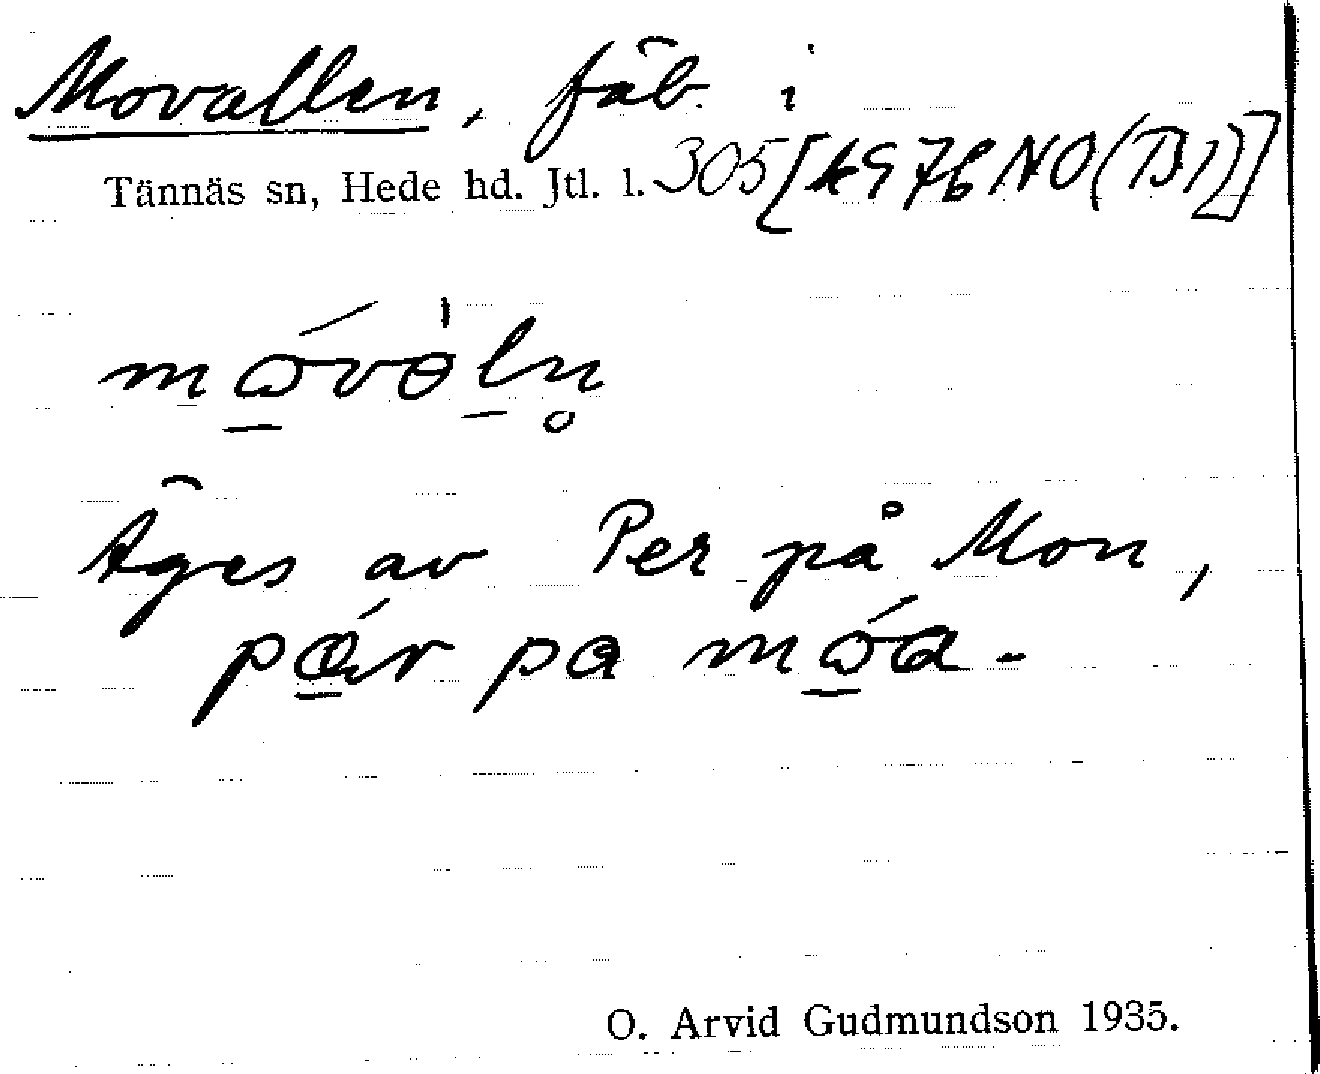 Movallen, fäb. i
Tännäs sn, Hede hd. Jtl. l. 305 [k976NO(B1)]
mɷ́vòl̠n̥
Äges av Per på Mon,
pǽr pa mɷ́a.
O. Arvid Gudmundson 1935.